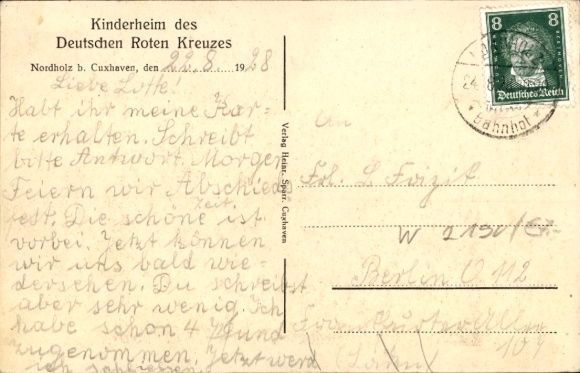 Kinderheim des
Deutschen Roten Kreuzes
Nordholz b. Cuxhaven, den 22.8. 1928
Liebe Lotte!
Habt ihr meine Kar-
te erhalten. Schreibt
bitte Antwort. Morgen
Feiern wir Abschieds
fest. Die schöne Zeit ist
vorbei. Jetzt können
wir uns bald wie-
dersehen. Du schreibst
aber sehr wenig. Ich
habe schon 4 Pfund
zugenommen. Jetzt werd
ich schliessen.
Verlag Heinr. Sparr, Cuxhaven
8 8
Deutsches Reich
Bahnhof
An
Frl. L
W 2190/
Berlin O 112
Frankfurter Allee
104